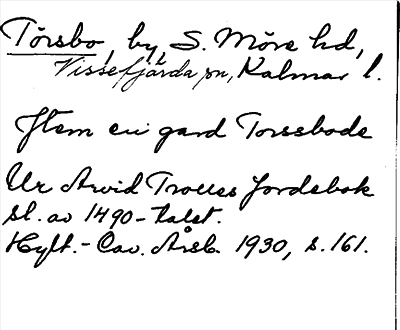 Törsbo, by, S. Möre hd,
Vissefjärda sn, Kalmar l.
Jtem en gard Torssbode
Ur Arvid Trolles Jordebok
sl. av 1490-talet.
Hylt.-Cav. Årsb. 1930, s. 161.